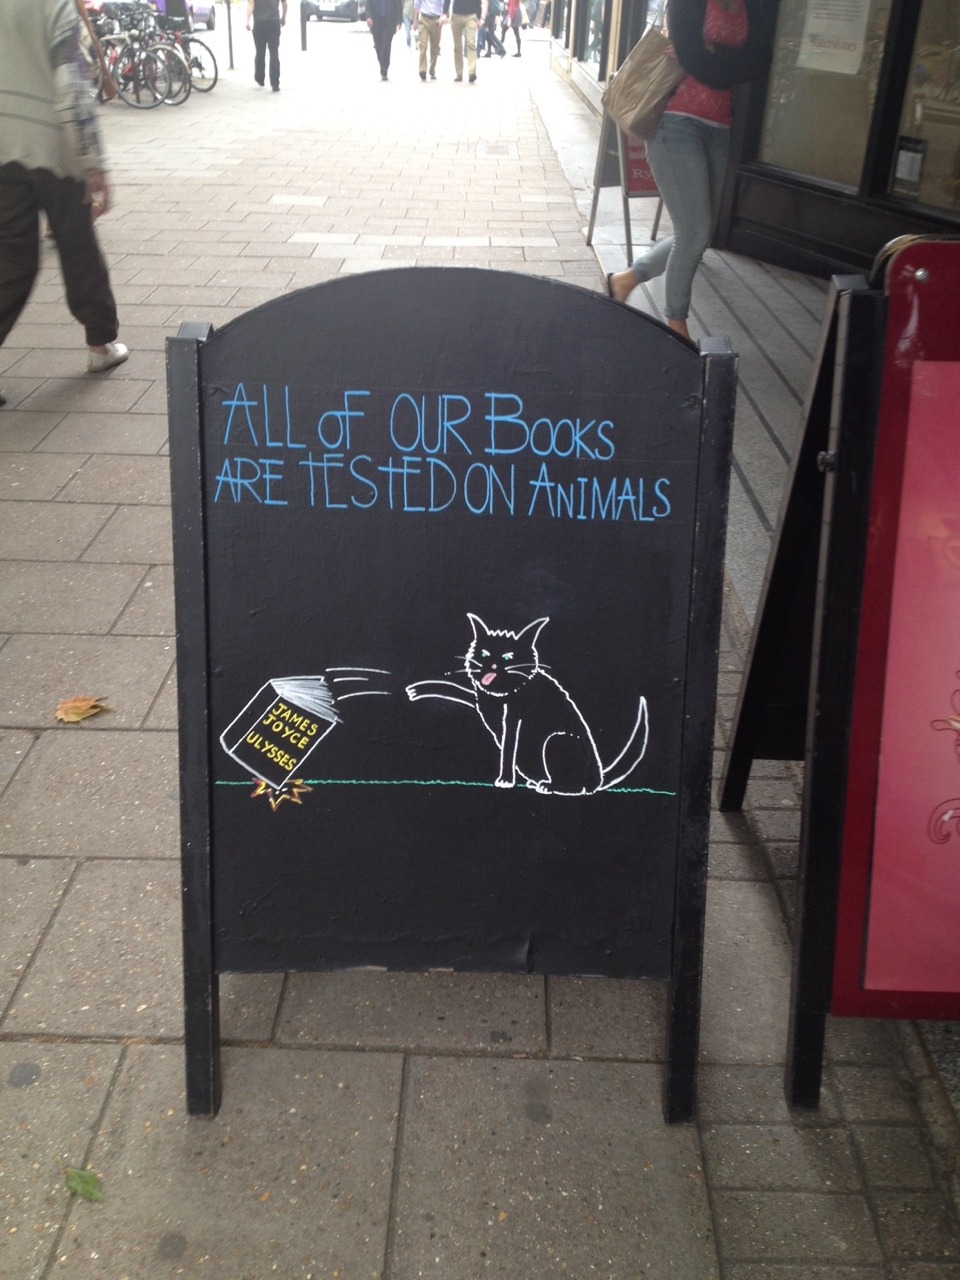 ALL OF OUR BOOKS
ARE TESTED ON ANIMALS
JAMES
JOYCE
ULYSSES
Ry